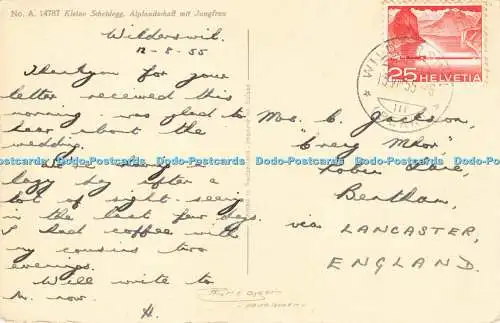 No. A. 14787 Kleine Scheidegg. Alplandschaft mit Jungfrau
Wilderswil.
12-8-55
Thankyou for your
letter received this
morning & was glad to
hear about the
wedding.
lazy day after a
lot of sight-seeing
in the last few days.
I had coffee with
my cousins two
evenings.
Will write to
now.
25 HELVETIA
WILD
Mrs C. Jackson,
"Craig Mhor"
Robin Lane,
Bentham,
via LANCASTER,
ENGLAND.
Dodo-Postcards Dodo-Postcards Dodo-Postcards Dodo-Postcards Dodo-Postcards